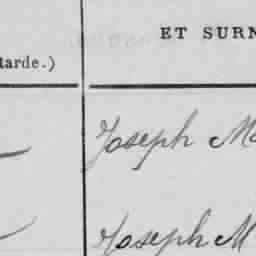 ET SURN
tarde.)
Joseph Ma
Joseph M